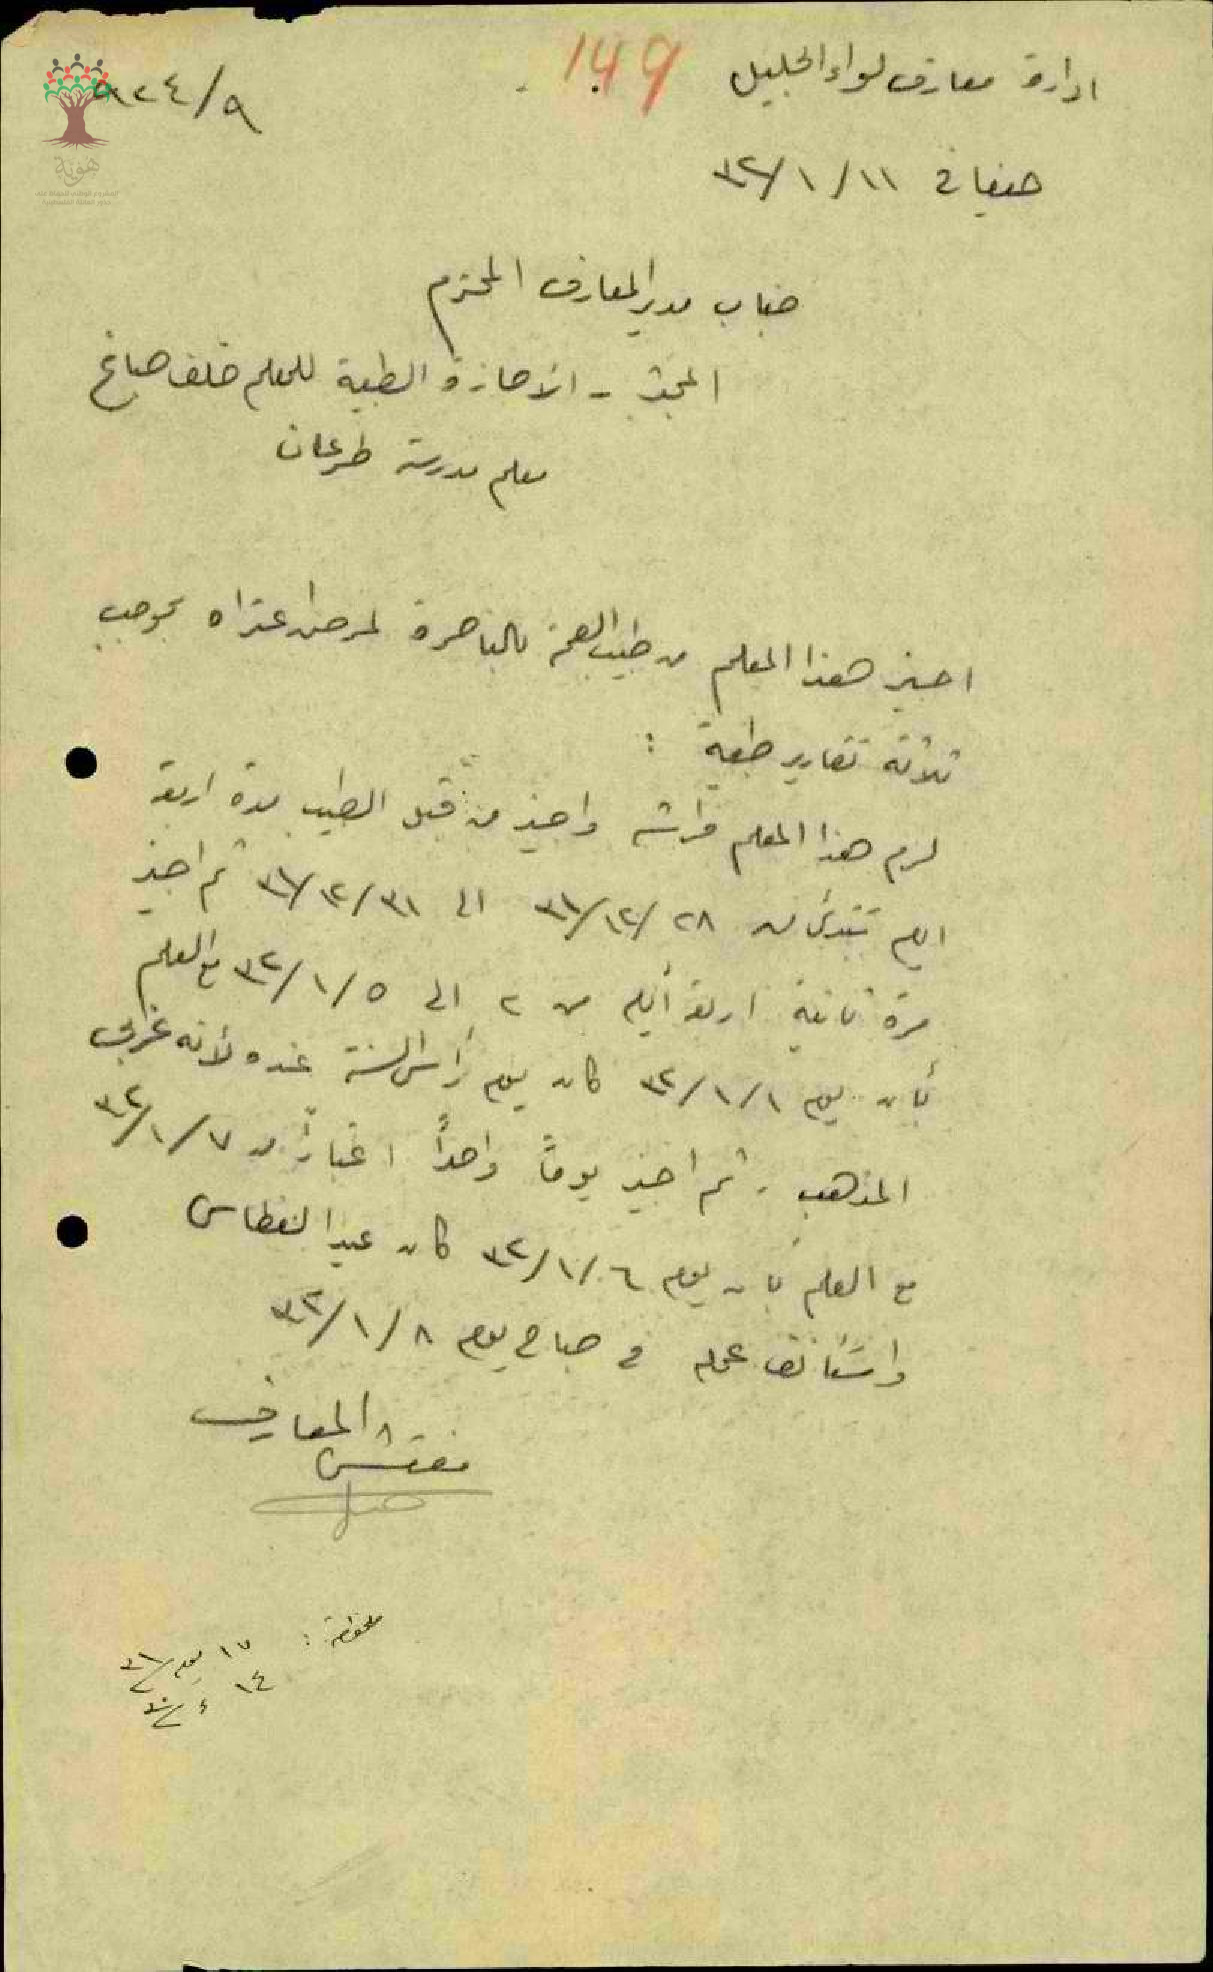 ادارة معارف لواء الجليل
149
٩٢٤/٩
هوية
حيفا في ١١/١/٣٢
جناب مدير المعارف المحترم
المبحث - الاجازة الطبية للمعلم خلف صباغ
معلم مدرسة طرعان
اجيز هذا المعلم من طبيب الصحة بالناصرة لمرض اعتراه بموجب
ثلاثة تقارير طبية :
لزم هذا المعلم فراشه واجيز من قبل الطبيب مدة اربعة
ايام تبتدئ من ٢٨/١٢/٣١ الى ٣١/١٢/٣١ ثم اجيز
مرة ثانية اربعة أيام من ٢ الى ٥/١/٣٢ مع العلم
بأن يوم ١/١/٣٢ كان يوم رأس السنة عنده لأنه غربي
المذهب . ثم اجيز يوماً واحداً اعتباراً من ٧/١/٣٢
مع العلم بأن يوم ٦/١/٣٢ كان عيد الغطاس
واستأنف عمله في صباح يوم ٨/١/٣٢
مفتش المعارف
ملحوظة : ١٧ يوم ٣١
١٤